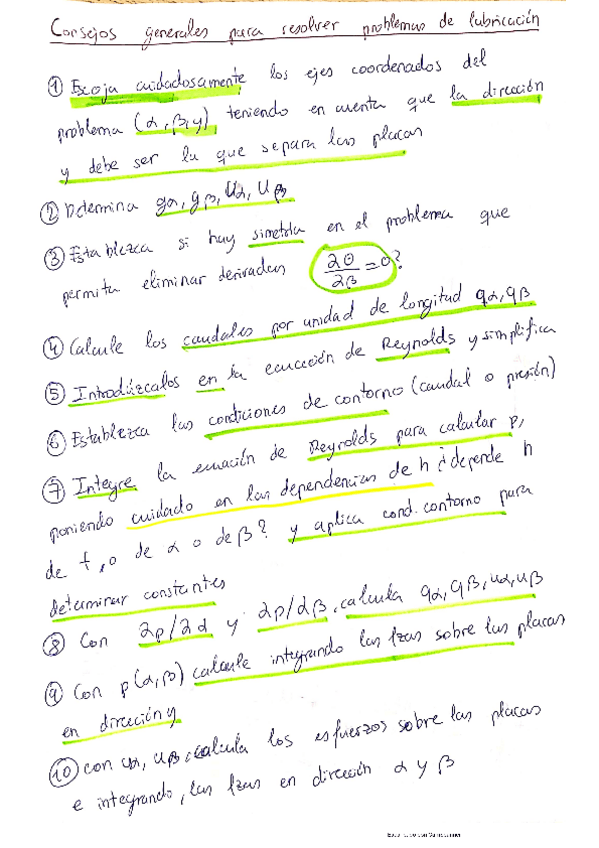 Consejos generales para resolver problemas de lubricación
① Escoja cuidadosamente los ejes coordenados del
problema (α, β, y) teniendo en cuenta que la dirección
y debe ser la que separa las placas
② Determina gα, gβ, Uα, Uβ
③ Establezca si hay simetría en el problema que
permita eliminar derivadas ∂θ/∂β = 0?
④ Calcule los caudales por unidad de longitud qα, qβ
⑤ Introdúzcalos en la ecuación de Reynolds y simplifica
⑥ Establezca las condiciones de contorno (caudal o presión)
⑦ Integre la ecuación de Reynolds para calcular p,
poniendo cuidado en las dependencias de h ¿depende h
de t, o de α o de β? y aplica cond. contorno para
determinar constantes
⑧ Con ∂p/∂α y ∂p/∂β, calcula qα, qβ, uα, uβ
⑨ Con p(α,β) calcule integrando las fzas sobre las placas
en dirección y
⑩ con uα, uβ, calcula los esfuerzos sobre las placas
e integrando, las fzas en dirección α y β
Escaneado con CamScanner